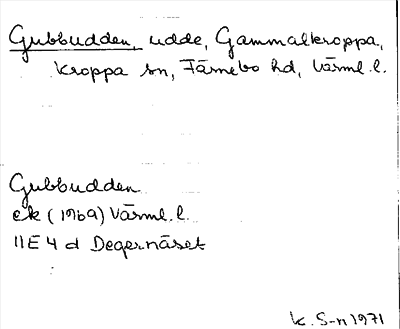 Gubbudden, udde, Gammalkroppa,
Kroppa sn, Färnebo hd, Värml. l.
Gubbudden
ek (1969) Värml. l.
11E 4 d Degernäset
K. S-n 1971